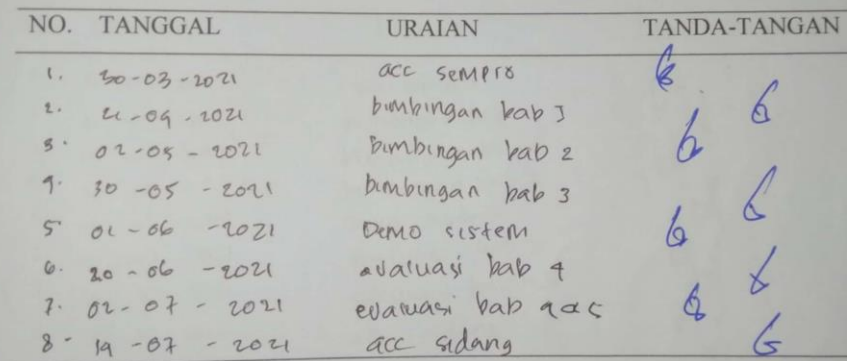 NO. TANGGAL URAIAN TANDA-TANGAN
1. 30-03-2021 acc sempro
2. 21-04-2021 bimbingan bab 1
3. 02-05-2021 Bimbingan bab 2
4. 30-05-2021 bimbingan bab 3
5 01-06-2021 Demo sistem
6. 20-06-2021 evaluasi bab 4
7. 02-07-2021 evaluasi bab 4 & 5
8- 19-07-2021 acc sidang